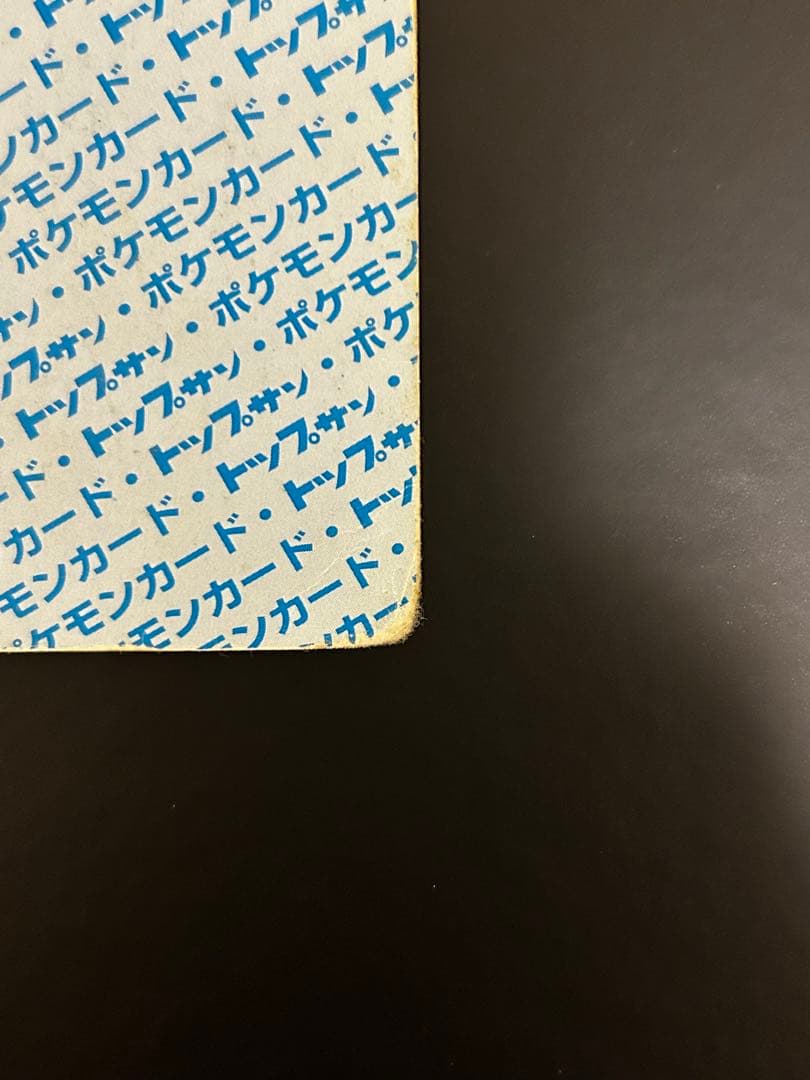 ト
ード・トッ
ード・トップ
ンカード・トップサ
モンカード・トップ
ケモンカード・ト
ポケモンカード・
・ポケモンカード
サン・ポケモンカー
ップサン・ポケモン
・トップサン・ポケ
ード・トップサン・
カード・トップサン
モンカード・トップサ
ポケモンカード・トップ
モンカード・
ンカー